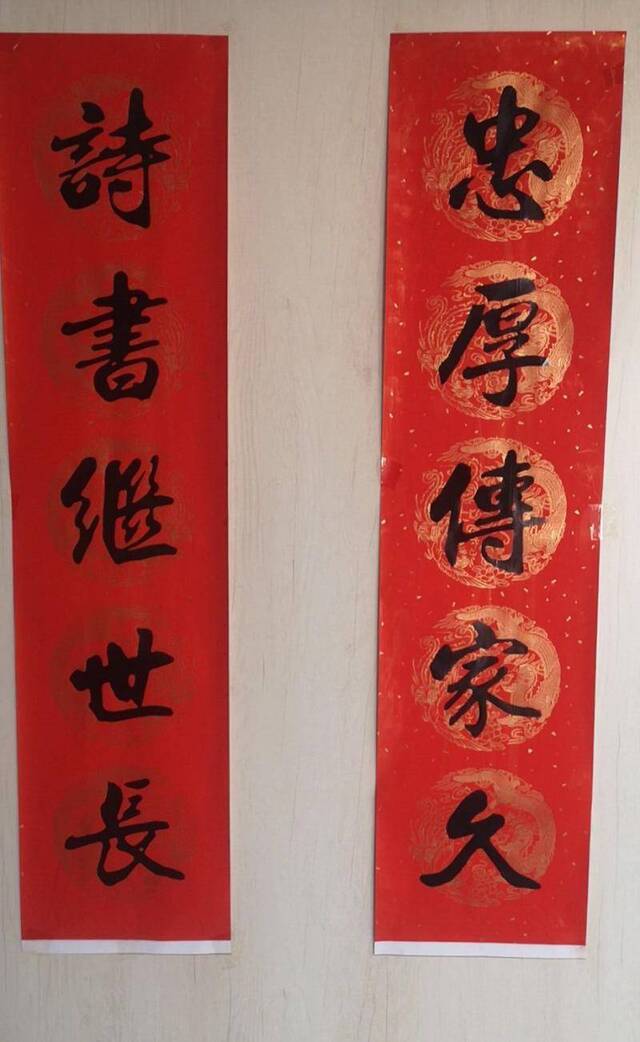 忠厚傳家久
詩書繼世長